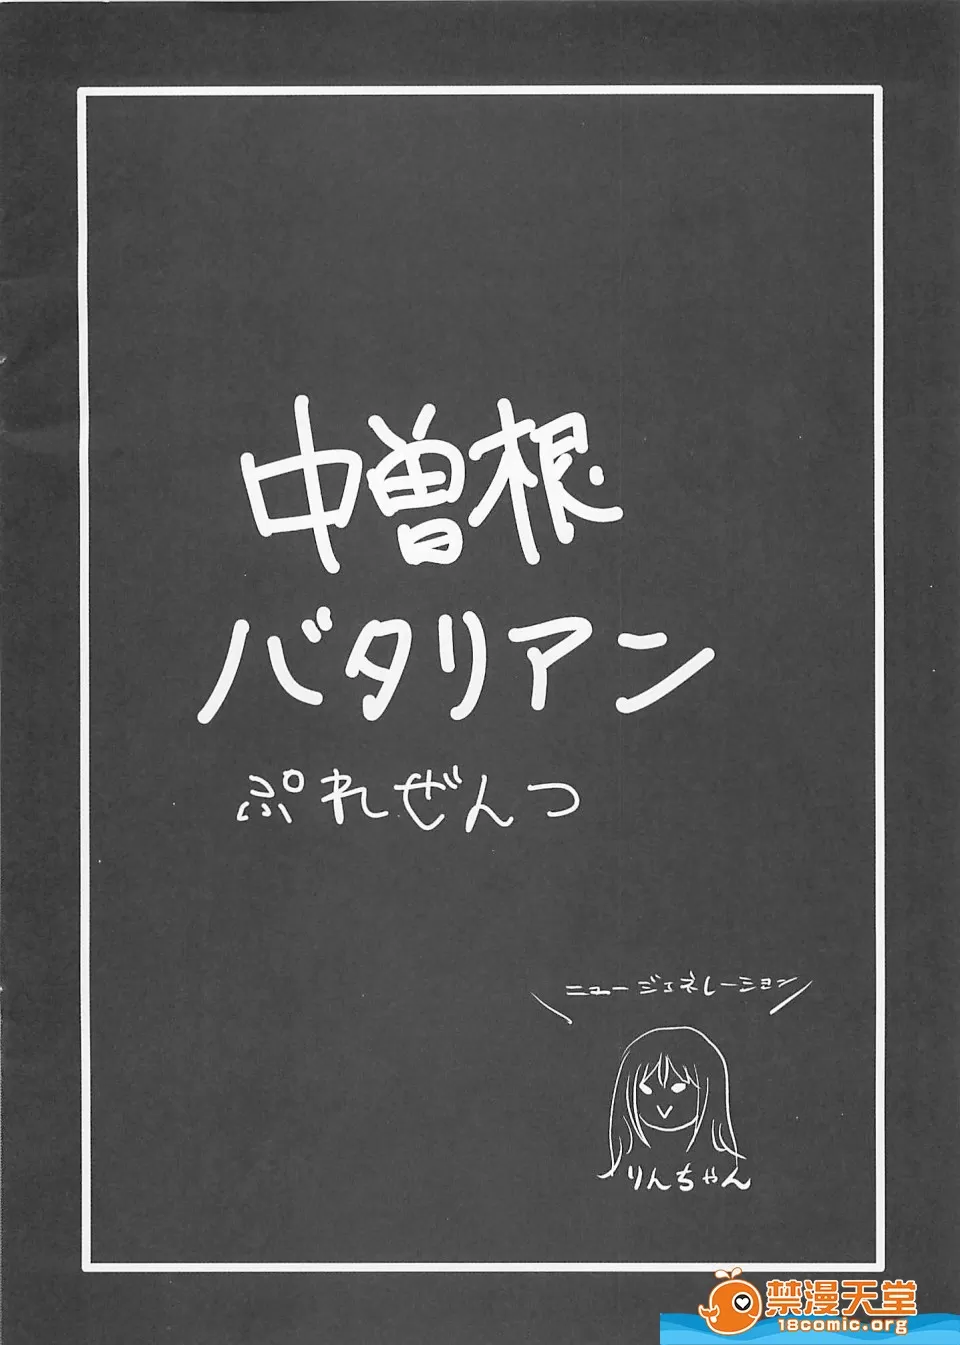 中曽根
バタリアン
ぷれぜんつ
ニュージェネレーション
りんちゃん
禁漫天堂
18comic.org